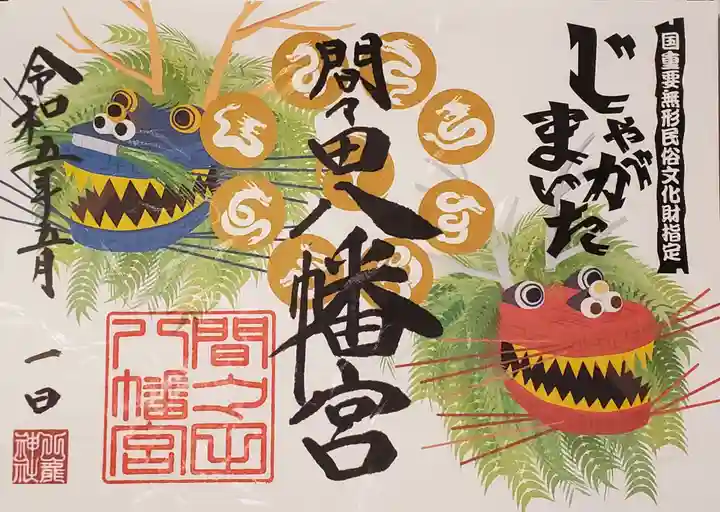 国重要無形民俗文化財指定
じゃがまいた
間々田八幡宮
令和五年五月
一日
間々田
八幡宮
神社